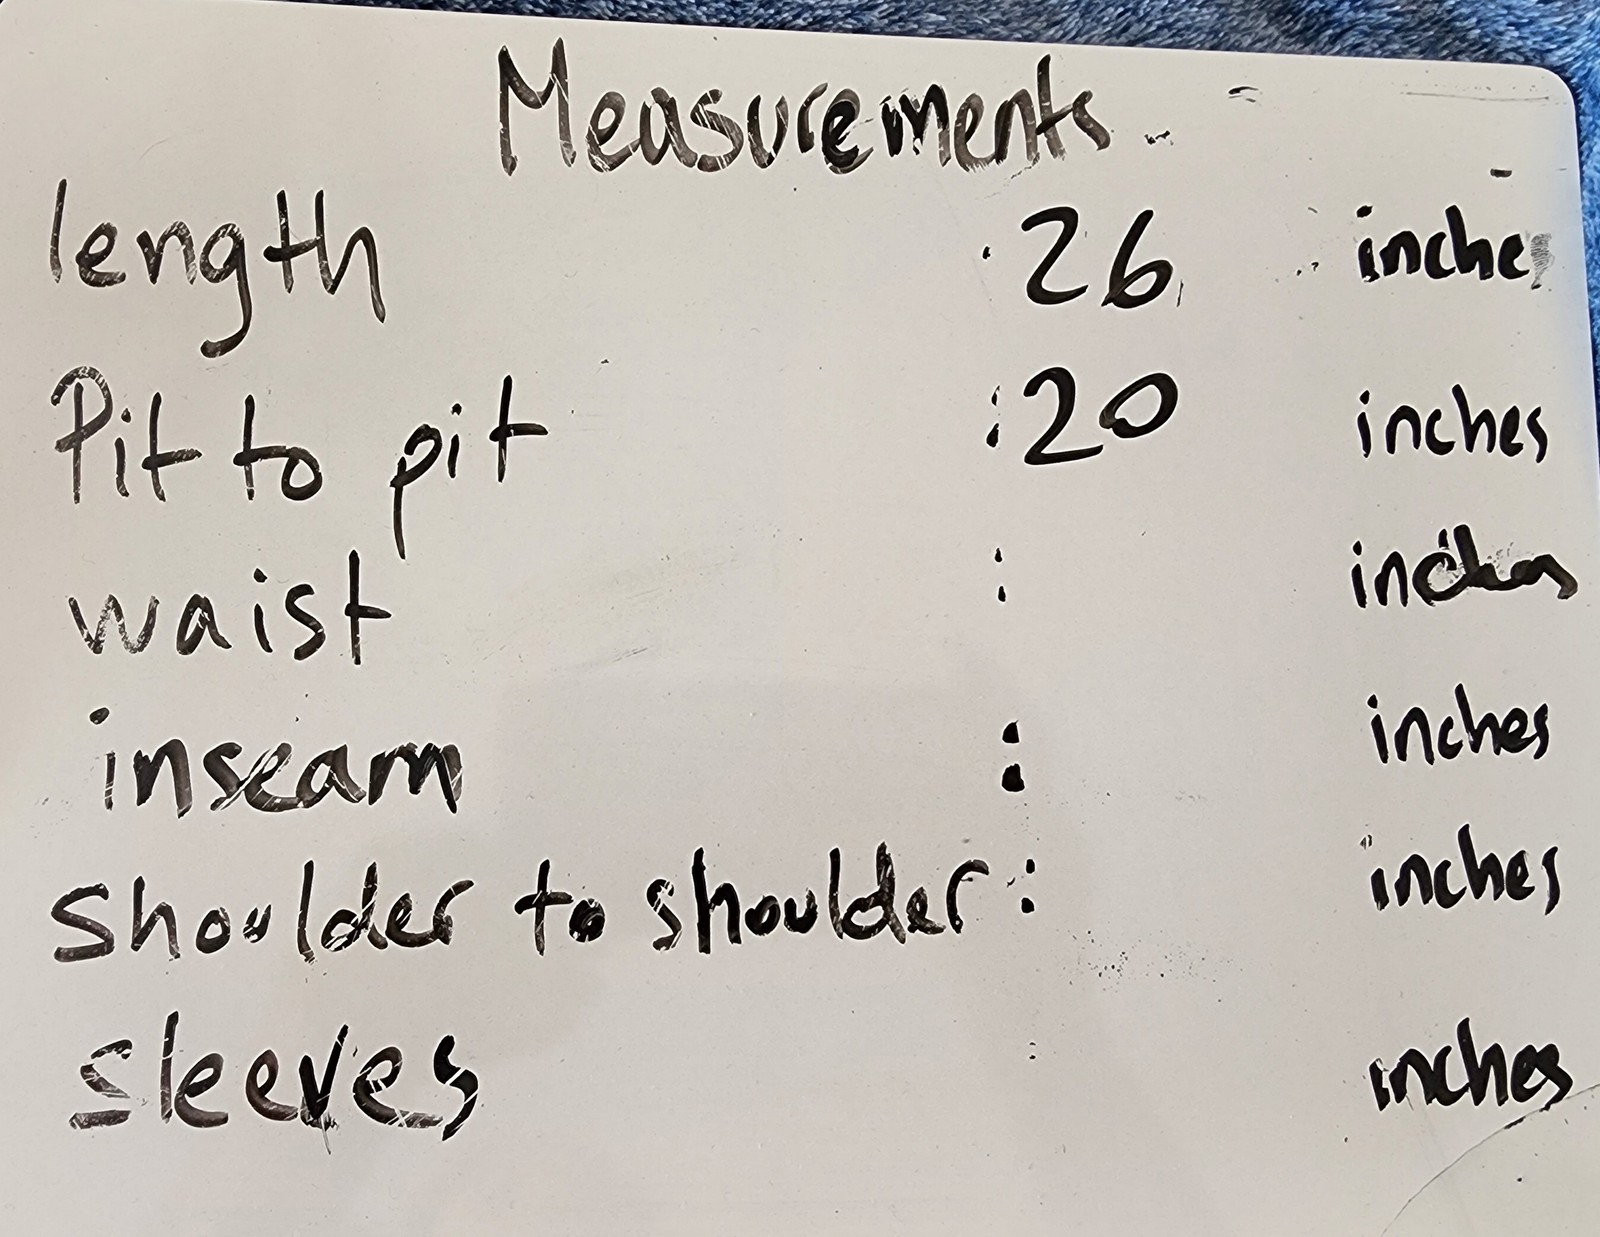 Measurements
length : 26 inches
Pit to pit : 20 inches
waist : inches
inseam : inches
shoulder to shoulder : inches
sleeves : inches